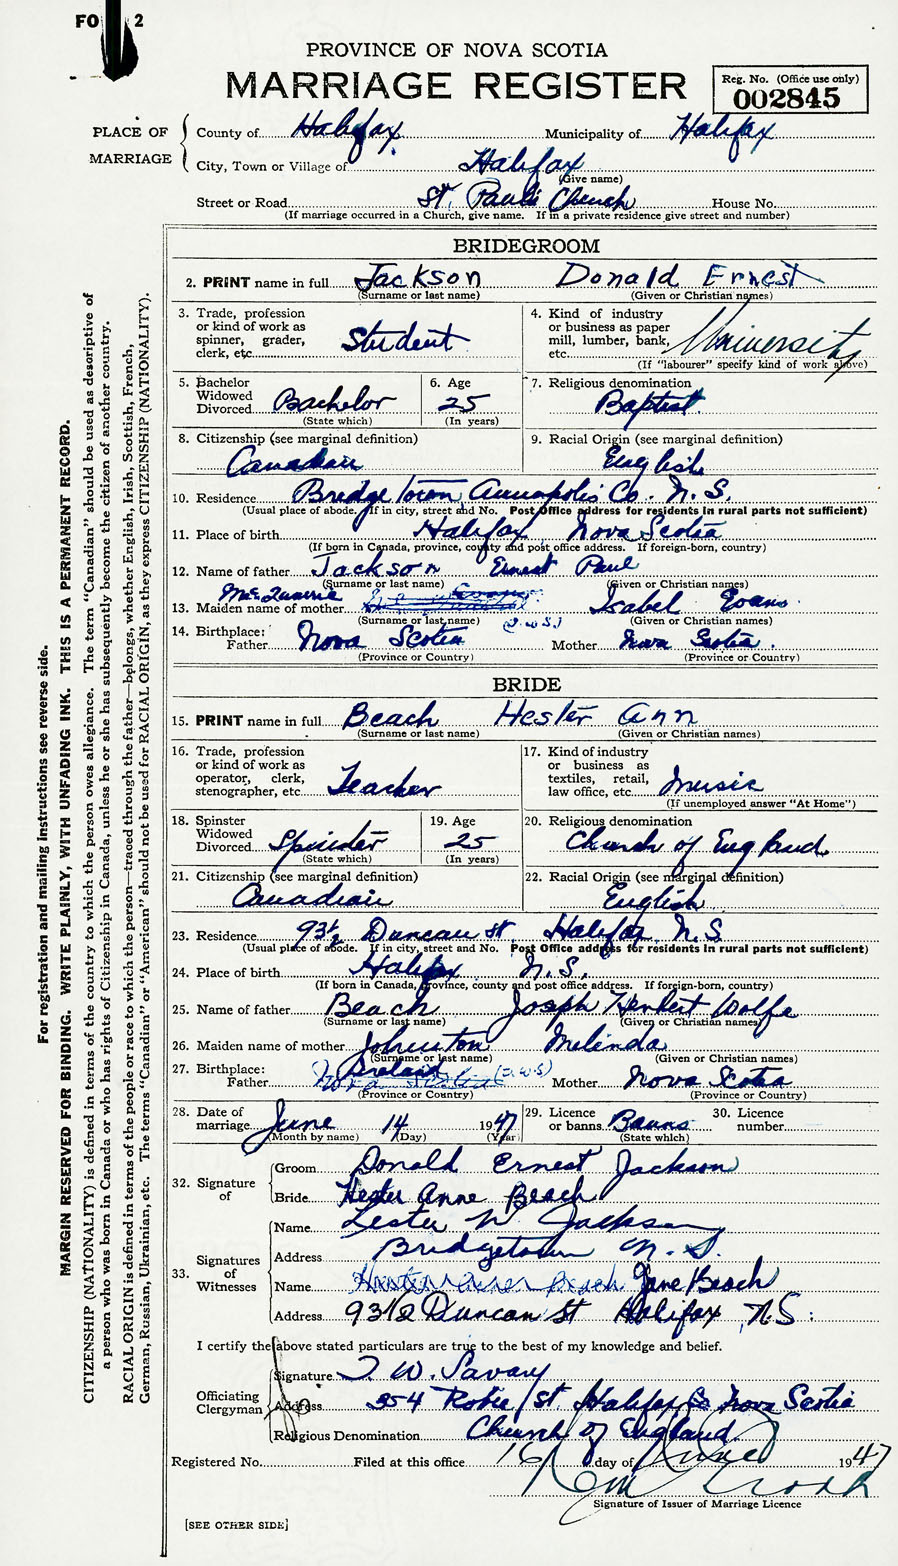 FO 2
PROVINCE OF NOVA SCOTIA
MARRIAGE REGISTER
Reg. No. (Office use only)
002845
PLACE OF MARRIAGE
County of Halifax Municipality of Halifax
City, Town or Village of Halifax
(Give name)
Street or Road St. Paul's Church House No.
(If marriage occurred in a Church, give name. If in a private residence give street and number)
BRIDEGROOM
2. PRINT name in full Jackson Donald Ernest
(Surname or last name) (Given or Christian names)
3. Trade, profession or kind of work as spinner, grader, clerk, etc. Student
4. Kind of industry or business as paper mill, lumber, bank, etc. University
(If "labourer" specify kind of work above)
5. Bachelor Widowed Divorced Bachelor
(State which)
6. Age 25
(In years)
7. Religious denomination
Baptist
8. Citizenship (see marginal definition)
Canadian
9. Racial Origin (see marginal definition)
English
10. Residence Bridgetown Annapolis Co. N.S.
(Usual place of abode. If in city, street and No. Post Office address for residents in rural parts not sufficient)
11. Place of birth Halifax, Nova Scotia
(If born in Canada, province, county and post office address. If foreign-born, country)
12. Name of father Jackson Ernest Paul
(Surname or last name) (Given or Christian names)
13. Maiden name of mother Isabel Evans
(Surname or last name) (J.W.S.) (Given or Christian names)
14. Birthplace: Father Nova Scotia Mother Nova Scotia.
(Province or Country) (Province or Country)
BRIDE
15. PRINT name in full Beach Hester Ann
(Surname or last name) (Given or Christian names)
16. Trade, profession or kind of work as operator, clerk, stenographer, etc. Teacher
17. Kind of industry or business as textiles, retail, law office, etc. Music
(If unemployed answer "At Home")
18. Spinster Widowed Divorced Spinster
(State which)
19. Age 25
(In years)
20. Religious denomination
Church of England
21. Citizenship (see marginal definition)
Canadian
22. Racial Origin (see marginal definition)
English
23. Residence 93½ Duncan St Halifax N.S.
(Usual place of abode. If in city, street and No. Post Office address for residents in rural parts not sufficient)
24. Place of birth Halifax N.S.
(If born in Canada, province, county and post office address. If foreign-born, country)
25. Name of father Beach Joseph Herbert Wolfe
(Surname or last name) (Given or Christian names)
26. Maiden name of mother Johnston Melinda
(Surname or last name) (Given or Christian names)
27. Birthplace: Father Ireland Nova Scotia (J.W.S) Mother Nova Scotia
(Province or Country) (Province or Country)
28. Date of marriage June 14 1947
(Month by name) (Day) (Year)
29. Licence or banns Banns
(State which)
30. Licence number
32. Signature of
Groom Donald Ernest Jackson
Bride Hester Anne Beach
33. Signatures of Witnesses
Name Lester N. Jackson
Address Bridgetown N.S.
Name Jane Beach
Address 93 1/2 Duncan St Halifax, N.S.
I certify the above stated particulars are true to the best of my knowledge and belief.
Officiating Clergyman
Signature T. W. Savary
Address 354 Robie St Halifax Co Nova Scotia
Religious Denomination Church of England
Registered No. Filed at this office 16 day of June 1947
Signature of Issuer of Marriage Licence
[SEE OTHER SIDE]
For registration and mailing instructions see reverse side.
MARGIN RESERVED FOR BINDING. WRITE PLAINLY, WITH UNFADING INK. THIS IS A PERMANENT RECORD.
CITIZENSHIP (NATIONALITY) is defined in terms of the country to which the person owes allegiance. The term "Canadian" should be used as descriptive of
a person who was born in Canada or who has rights of Citizenship in Canada, unless he or she has subsequently become the citizen of another country.
RACIAL ORIGIN is defined in terms of the people or race to which the person—traced through the father—belongs, whether English, Irish, Scottish, French,
German, Russian, Ukrainian, etc. The terms "Canadian" or "American" should not be used for RACIAL ORIGIN, as they express CITIZENSHIP (NATIONALITY).